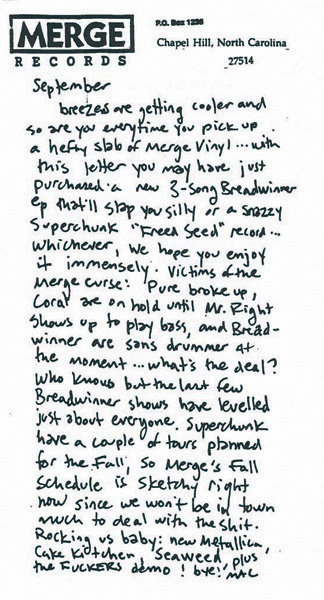 MERGE
RECORDS
P.O. Box 1235
Chapel Hill, North Carolina
27514
September
breezes are getting cooler and
so are you everytime you pick up
a hefty slab of Merge Vinyl... with
this letter you may have just
purchased a new 3-song Breadwinner
ep that'll slap you silly or a snazzy
Superchunk "Freed Seed" record...
whichever, we hope you enjoy
it immensely. Victims of the
Merge curse: Pure broke up,
Coral are on hold until Mr. Right
shows up to play bass, and Bread-
winner are sans drummer at
the moment... what's the deal?
Who knows but the last few
Breadwinner shows have levelled
just about everyone. Superchunk
have a couple of tours planned
for the Fall, so Merge's Fall
schedule is sketchy right
now since we won't be in town
much to deal with the shit.
Rocking us baby: new Metallica,
Cake Kitchen, Seaweed, plus
the FUCKERS demo! bye! Mac